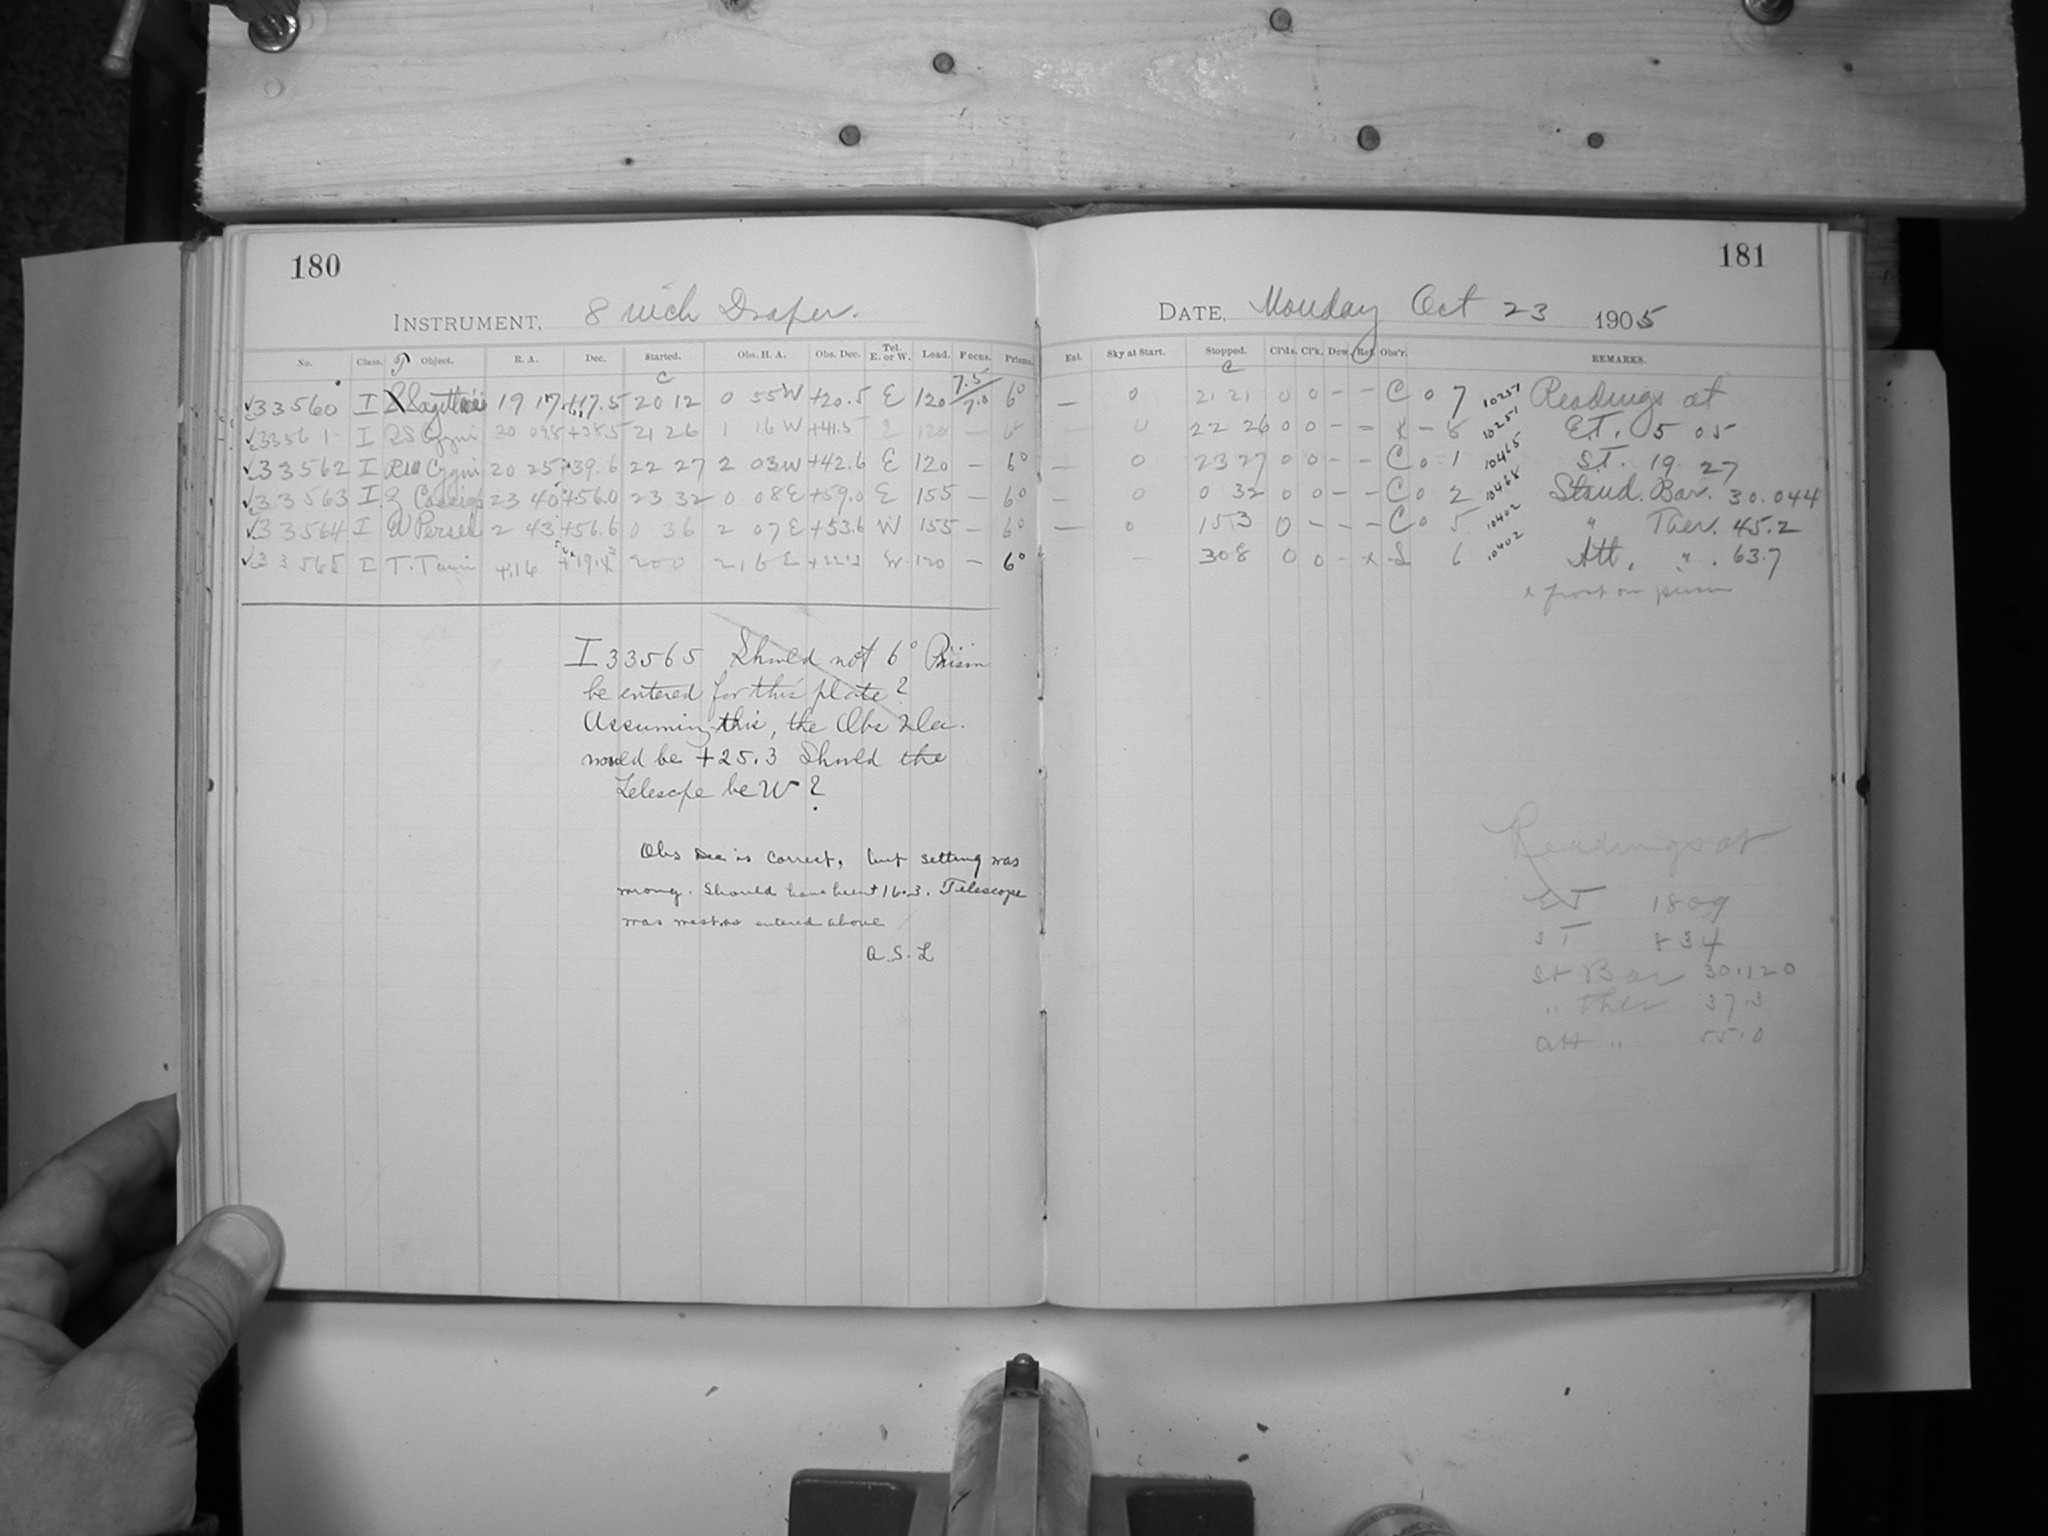 180
INSTRUMENT, 8 inch Draper.
No. Class. Object. R. A. Dec. Started. Obs. H. A. Obs. Dec. Tel. E. or W. Load. Focus. Prisms.
33560 I 19 17. +17.5 20 12 0 55W +20.5 E 120 7.5/7.0 6°
33561 I RS Cygni 20 09.8 +38.5 21 26 1 16 W +41.5 120 — 6°
33562 I RW Cygni 20 25. +39.6 22 27 2 03W +42.6 E 120 — 6°
33563 I Z Cassiop 23 40. +56.0 23 32 0 08E +59.0 E 155 — 6°
33564 I W Persei 2 43. +56.6 0 36 2 07E +53.6 W 155 — 6°
33565 I T. Tauri 4.16 200 2,16 E W 120 — 6°
I 33565 Should not 6° Prism
be entered for this plate?
Assuming this, the Obs Dec.
would be +25.3 Should the
Telescope be W?
Obs Dec is correct, but setting was
wrong. Should have been +16.3. Telescope
was west as entered above
A. S. L
181
DATE, Monday Oct 23 1905
Eul. Sky at Start. Stopped. Cl'ds. Cl'k. Dew. Ref. Obs'r. REMARKS.
— 0 21 21 0 0 – – C 0 7 10251 Readings at
0 22 26 0 0 – – – 8 10251 E.T. 5 05
— 0 23 27 0 0 – – C 0 1 10465 S.T. 19 27
— 0 0 32 0 0 – – C 0 2 10468 Stand. Bar. 30.044
— 0 153 0 – – – C 0 5 10402 " Ther. 45.2
— 308 0 0 – x L 6 10402 Att. " . 63.7
x frost on prism
Readings at
ET 1809
ST 834
St Bar 30.120
" ther 37.3
att " 55.0